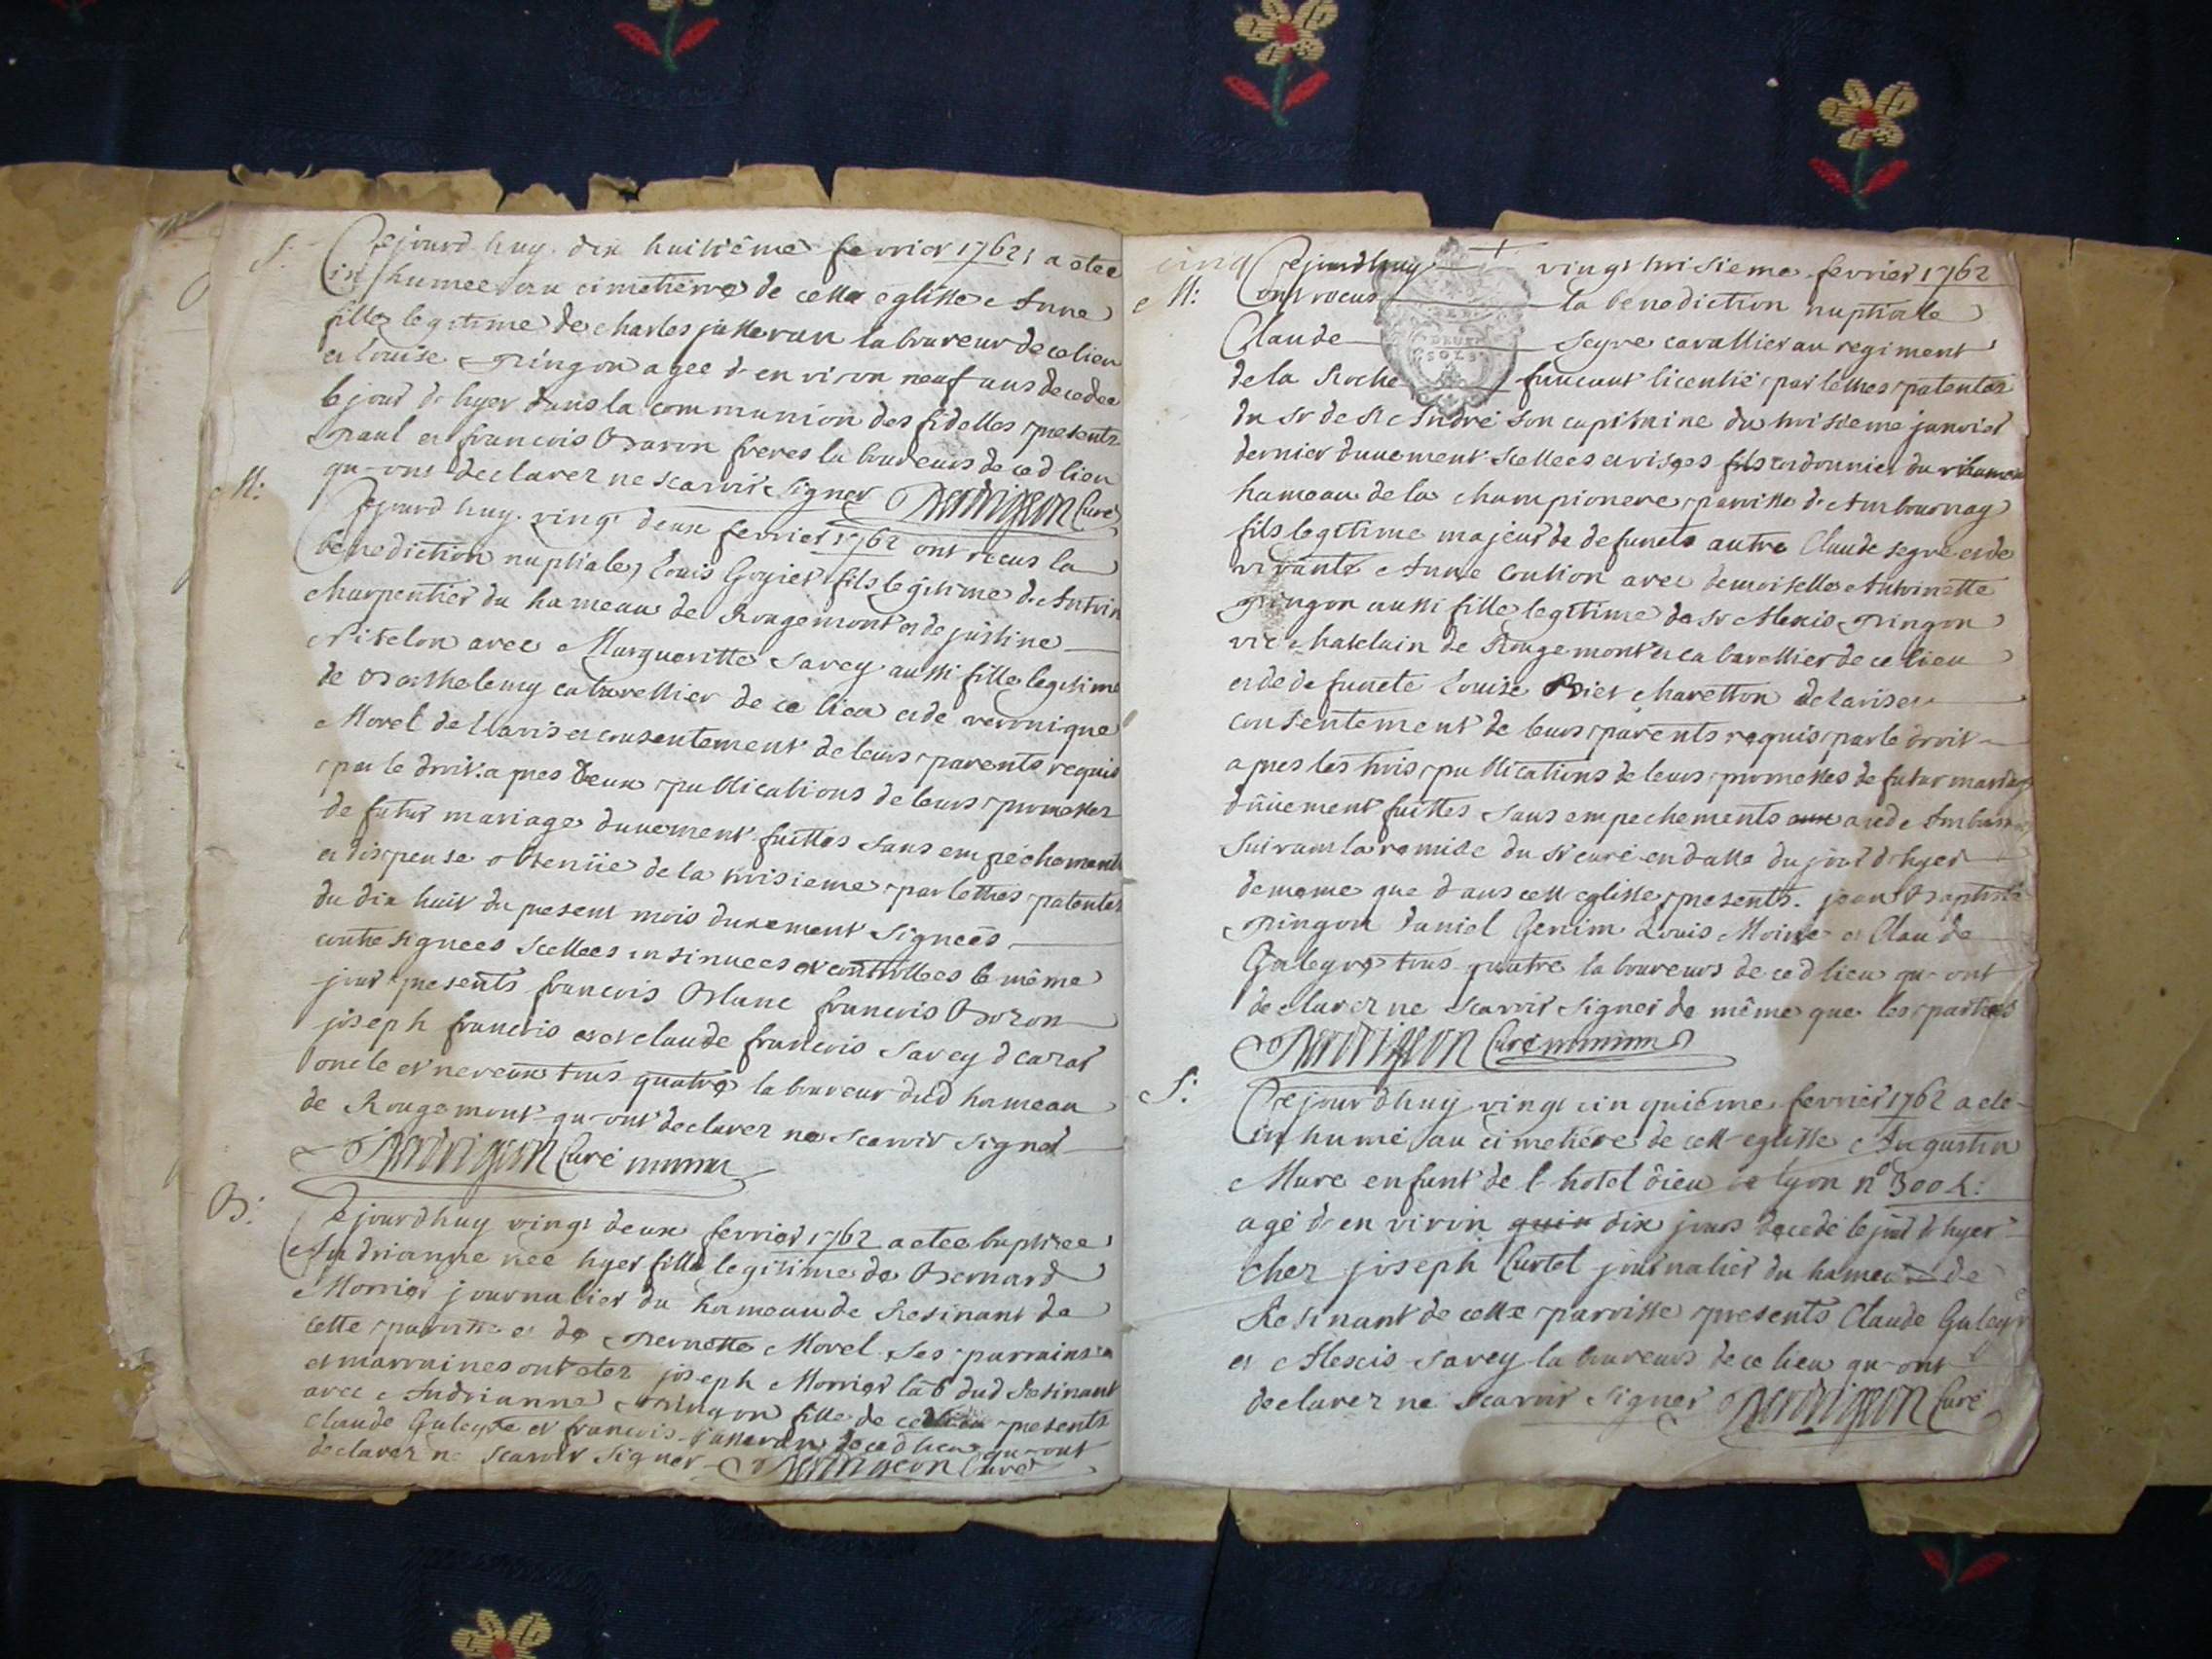 S:
Cejourd huy dix huitième fevrier 1762 a etee
inhumee au cimetierre de cette eglisse Anne
fille legitime de charles jasseran laboureur de ce lieu
et louise pingon agee d environ neuf ans decedee
le jour d hyer dans la communion des fidelles presents
paul et francois Baron freres laboureurs de ced lieu
qu-ont declarer ne scavoir signer Curé
M:
Cejourd huy vingt deux fevrier 1762 ont recus la
benediction nuptiale Louis Goyiet fils legitime d Antoin
charpentier du hameau de Rougemont et de justine
Nitelon avec Margueritte Savey aussi fille legitime
de Barthelemy cabarettier de ce lieu et de veronique
Morel de l lavis et consentement de leurs parents requis
par le droit apres deux publications de leurs promesses
de futur mariage duuement faittes sans empêchements
et dispense obtenüe de la troisieme par lettres patentes
du dix huit du present mois duuement signeés
contresignees scellees insinuees et controllees le même
jour presents francois Blanc francois Boron
joseph francois et claude francois Savey d cazar
oncle et neveux tous quatre laboureur dud hameau
de Rougemont qu-ont declarer ne scavoir signer
Curé
B:
Cejourdhuy vingt deux fevrier 1762 a etee baptisee
Andrianne née hyer fille legitime de Bernard
Morrier journalier du hameau de Resinant de
cette paroisse et de pernette Morel ses parrains
et marraines ont etez joseph Morrier lab dud Resinant
avec Andrianne pingon fille de ced lieu presents
Claude Galeyre et francois jasseran de ced lieu qu-ont
declarer ne scavoir signer Curé
cinq
Cejourdhuy vingt troisieme fevrier 1762
M:
ont recus la benediction nuptiale
DEUX
SOLS
Claude Seyve cavallier au regiment
de la Roche funcant licentié par lettres patentes
du Sr de St André son capitaine du troisieme janvier
dernier duuement scellees et visees fils cordonnier du
hameau de la championere paroisse d Ambournay
fils legitime majeur de defuncts autre Claude segve et de
vivante Anne Coution avec demoiselle Anthoinette
pingon aussi fille legitime de Sr Alexis pingon
vic chatelain de Rougemont et cabarettier de ce lieu
et de defuncte Louise Biet charetton de lavis et
consentement de leurs parents requis par le droit
apres les trois publications de leurs promesses de futur mariage
düuement faittes sans empechements aux aud Ambur
suivant la remise du Sr curé en datte du jour d hyer
de meme que dans cette eglisse presents jean Baptiste
pingon Daniel Genim Louis Moine et Claude
Galeyre tous quatre laboureurs de ced lieu qu-ont
declarer ne scavoir signer de même que les parties
Curé
S:
Cejourdhuy vingt cin quiéme fevrier 1762 a eté
inhumé au cimetiére de cette eglisse Augustin
Mure enfant de l hotel dieu de lyon nº 3004:
agé d environ quin dix jours decedé le jour d hyer
chez joseph Curtel journalier du hameau de
Resinant de cette paroisse presents Claude Galeyr
et Alexis Savey laboureurs de ce lieu qu-ont
declarer ne scavoir signer Curé